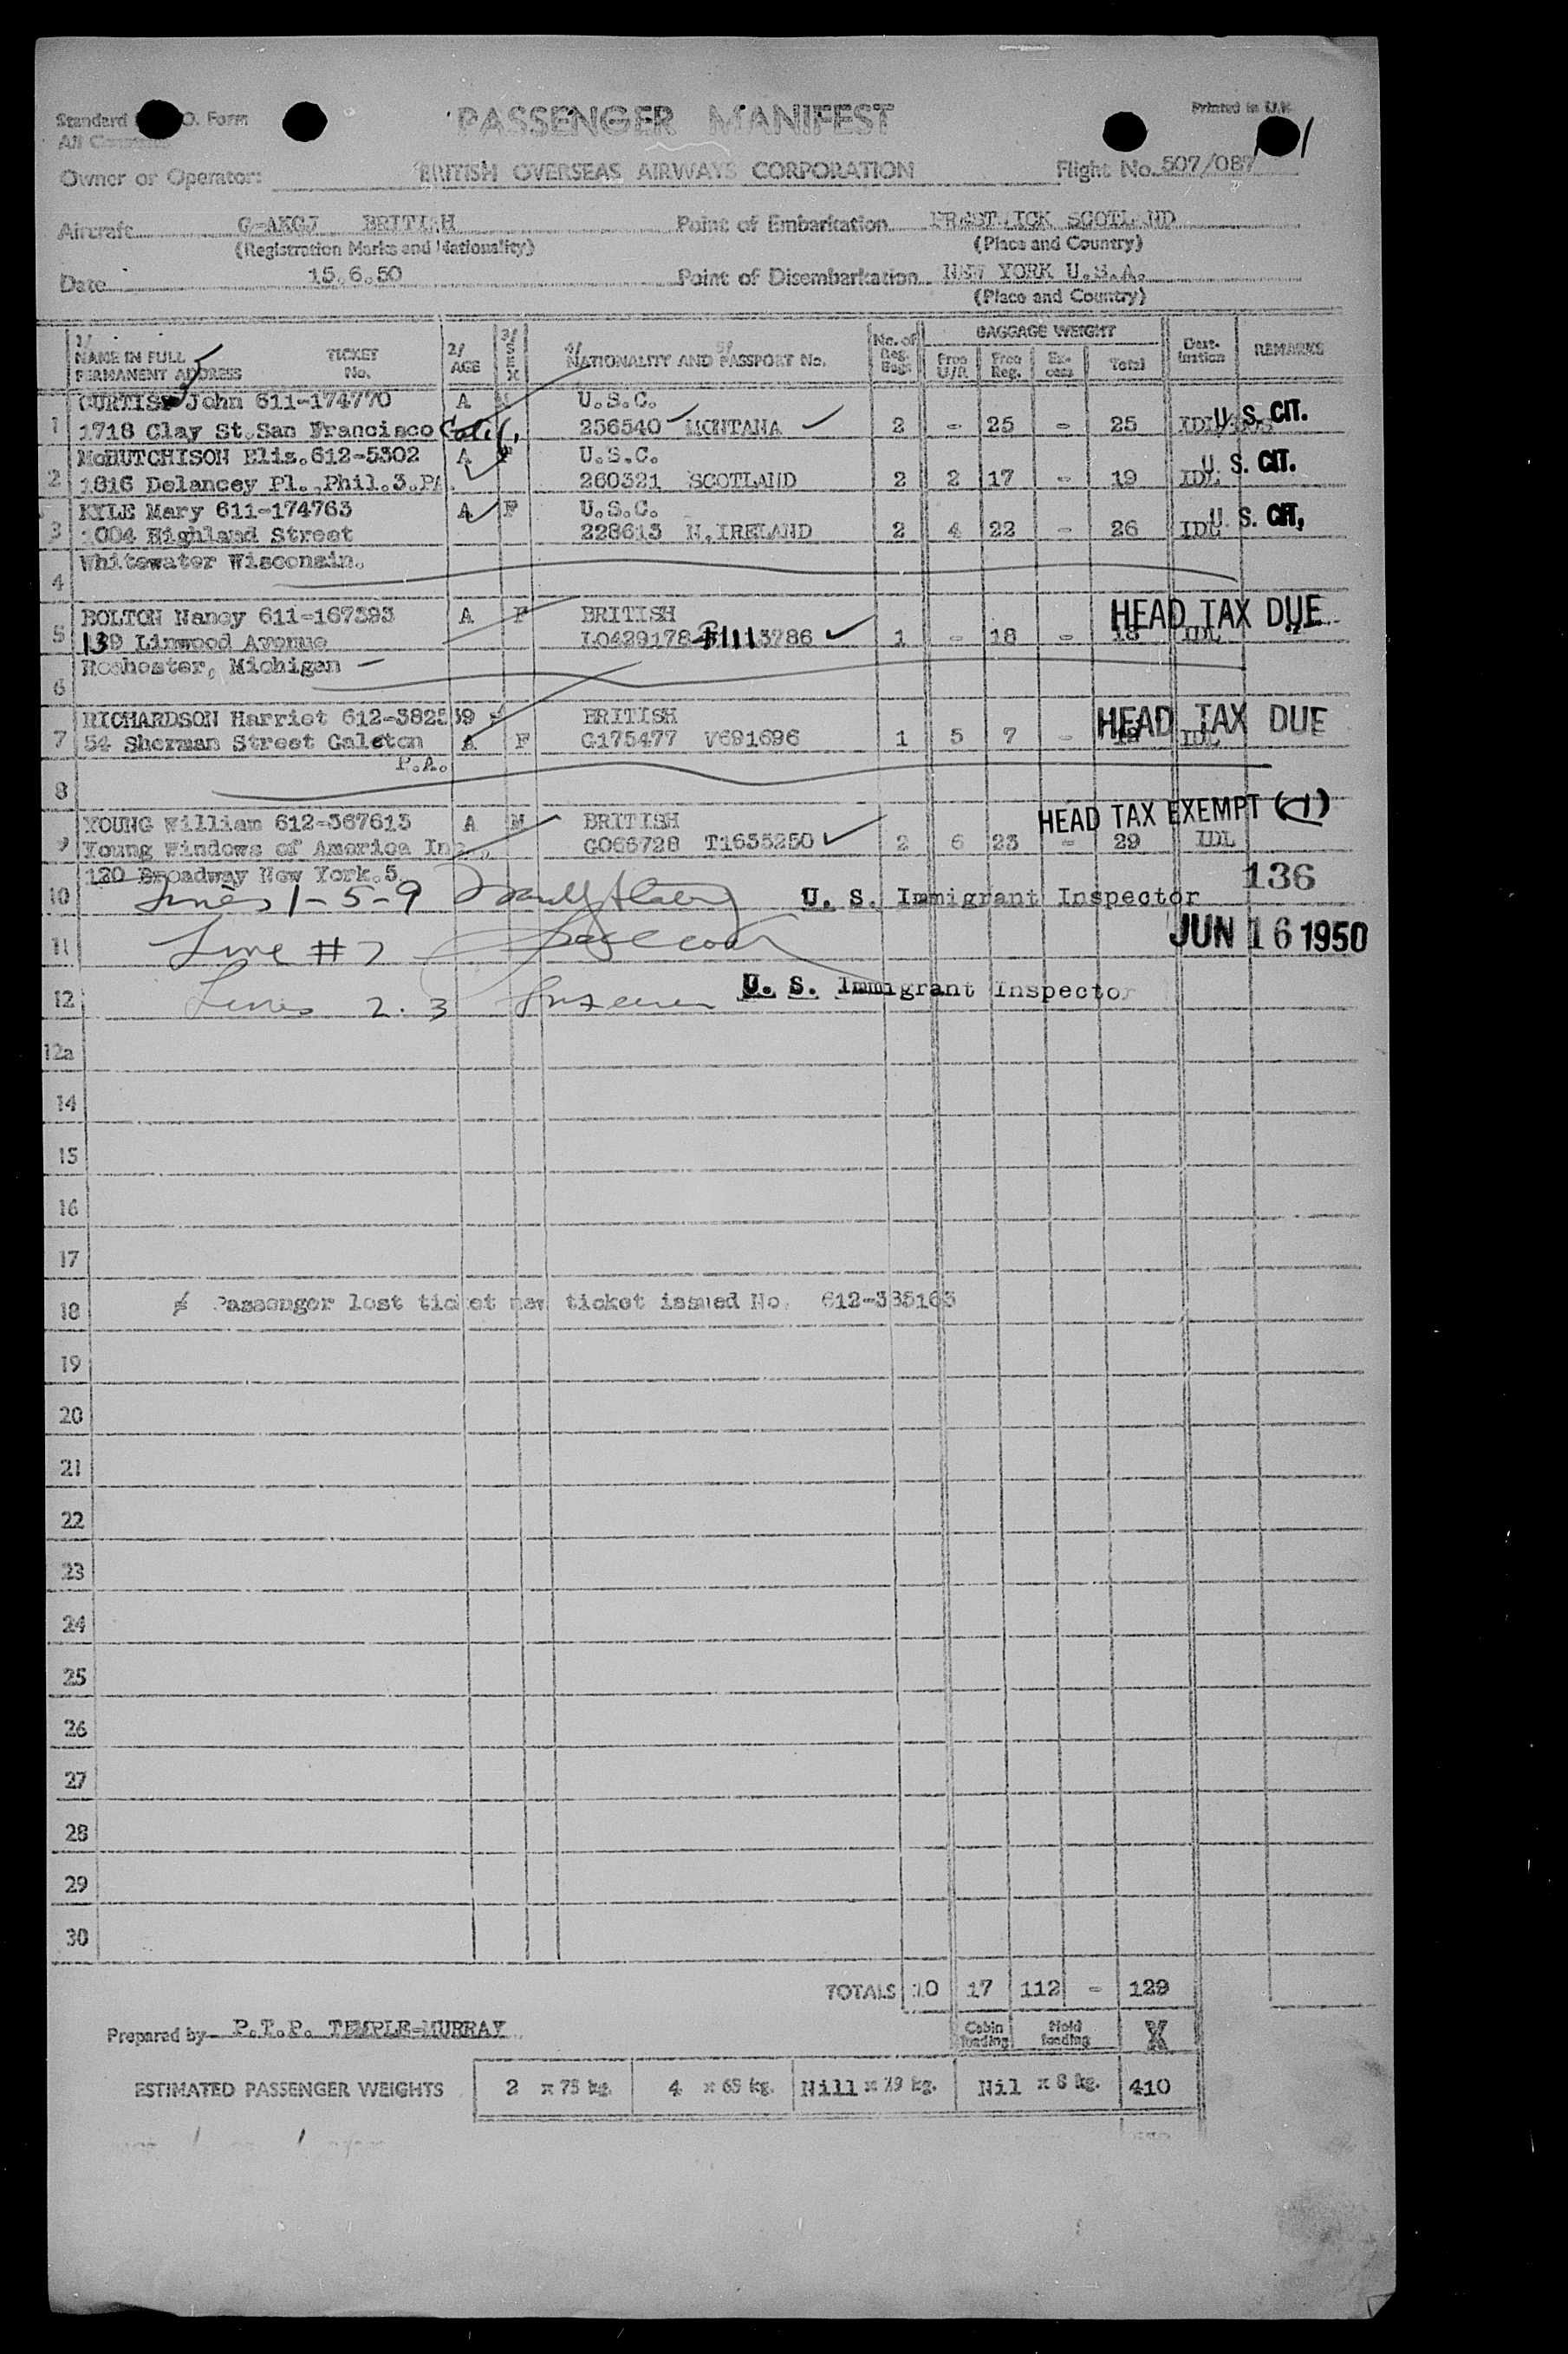 Standard O. Form
PASSENGER MANIFEST
Printed in U.K.
All
1
Owner or Operator: BRITISH OVERSEAS AIRWAYS CORPORATION Flight No. 507/087
Aircraft G-AKGJ BRITISH Point of Embarkation PRESTWICK SCOTLAND
(Registration Marks and Nationality) (Place and Country)
Date 15.6.50 Point of Disembarkation NEW YORK U.S.A.
(Place and Country)
1/ NAME IN FULL PERMANENT ADDRESS TICKET No. 2/ AGE 3/ SEX 4/ NATIONALITY AND 5/ PASSPORT No. No. of Reg. Bags BAGGAGE WEIGHT Free U/R Free Reg. Ex-cess Total Dest-ination REMARKS
CURTIS John 611-174770 A U.S.C.
1 1718 Clay St. San Francisco Calif, 256540 MONTANA 2 - 25 - 25 IDL U. S. CIT.
McHUTCHISON Eliz. 612-5302 A F U.S.C.
2 1816 Delancey Pl., Phil. 3. PA. 260321 SCOTLAND 2 2 17 - 19 IDL U. S. CIT.
KYLE Mary 611-174763 A F U.S.C.
3 1004 Highland Street 228613 N. IRELAND 2 4 22 - 26 IDL U. S. CIT,
Whitewater Wisconsin.
4
BOLTON Nancy 611-167393 A F BRITISH HEAD TAX DUE
5 139 Linwood Avenue LO429178 1113786 1 - 18 - 18 IDL
Rochester, Michigan -
6
RICHARDSON Harriet 612-382539 A F BRITISH HEAD TAX DUE
7 54 Sherman Street Galeton G175477 V691696 1 5 7 - 12 IDL
P.A.
8
YOUNG William 612-367613 A M BRITISH HEAD TAX EXEMPT (1)
9 Young Windows of America Inc., G066728 T1635250 2 6 23 - 29 IDL
120 Broadway New York. 5.
136
10 Lines 1-5-9 U. S. Immigrant Inspector
JUN 16 1950
11 Line # 7
12 Lines 2. 3 U. S. Immigrant Inspector
12a
14
15
16
17
18 ≠ Passenger lost ticket new ticket issued No. 612-385163
19
20
21
22
23
24
25
26
27
28
29
30
TOTALS 10 17 112 - 129
Prepared by P.T.P. TEMPLE-MURRAY Cabin loading Hold loading X
ESTIMATED PASSENGER WEIGHTS 2 x 75 kg. 4 x 65 kg. Nill x 39 kg. Nil x 8 kg. 410